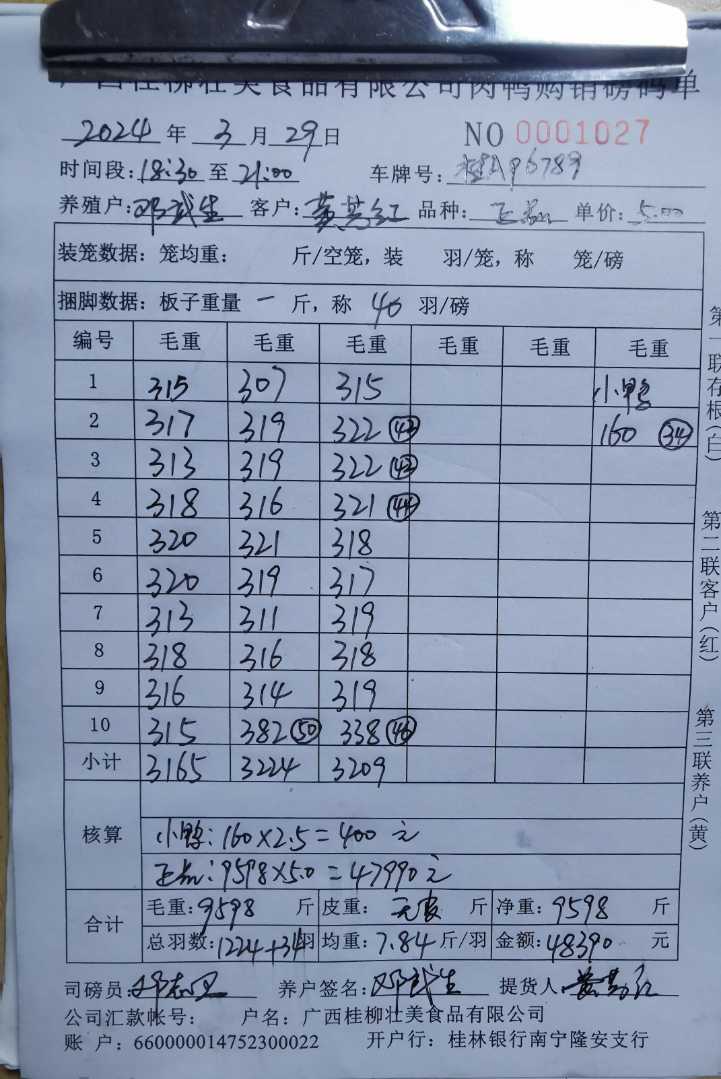 广西桂柳壮美食品有限公司肉鸭购销磅码单
2024 年 3 月 29 日 NO 0001027
时间段: 18:30 至 21:00 车牌号: 桂AP6789
养殖户: 邓武生 客户: 黄芳红 品种: 正品 单价: 5.00
装笼数据: 笼均重: 斤/空笼, 装 羽/笼, 称 笼/磅
捆脚数据: 板子重量 一 斤, 称 40 羽/磅
编号 毛重 毛重 毛重 毛重 毛重 毛重
1 315 307 315 小鸭
2 317 319 322 (43) 160 (34)
3 313 319 322 (43)
4 318 316 321 (44)
5 320 321 318
6 320 319 317
7 313 311 319
8 318 316 318
9 316 314 319
10 315 382 (50) 338 (46)
小计 3165 3224 3209
核算
小鸭: 160×2.5=400 元
正品: 9598×5.0=47990元
合计
毛重: 9598 斤 皮重: 无皮 斤 净重: 9598 斤
总羽数: 1224+34羽 均重: 7.84 斤/羽 金额: 48390 元
司磅员: 养户签名: 邓武生 提货人: 黄芳红
公司汇款帐号: 户名: 广西桂柳壮美食品有限公司
账 户: 660000014752300022 开户行: 桂林银行南宁隆安支行
第一联存根(白)
第二联客户(红)
第三联养户(黄)